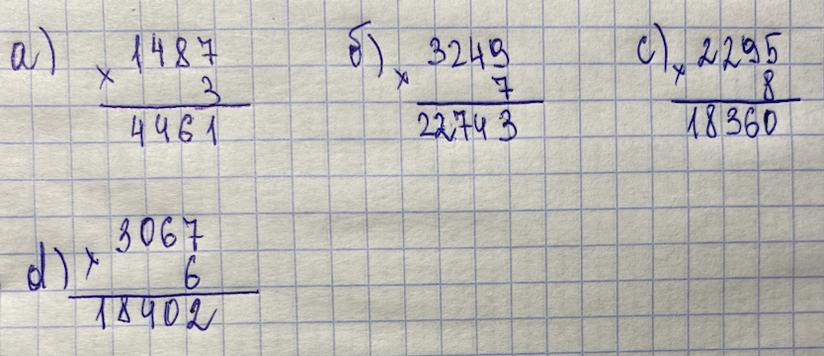 a) × 1487
3
4461
б) × 3249
7
22743
c) × 2295
8
18360
d) × 3067
6
18402